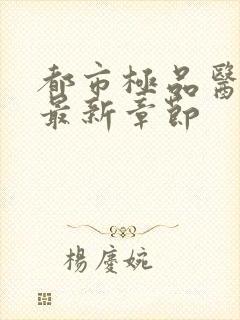 都市極品醫
最新章節
楊慶婉